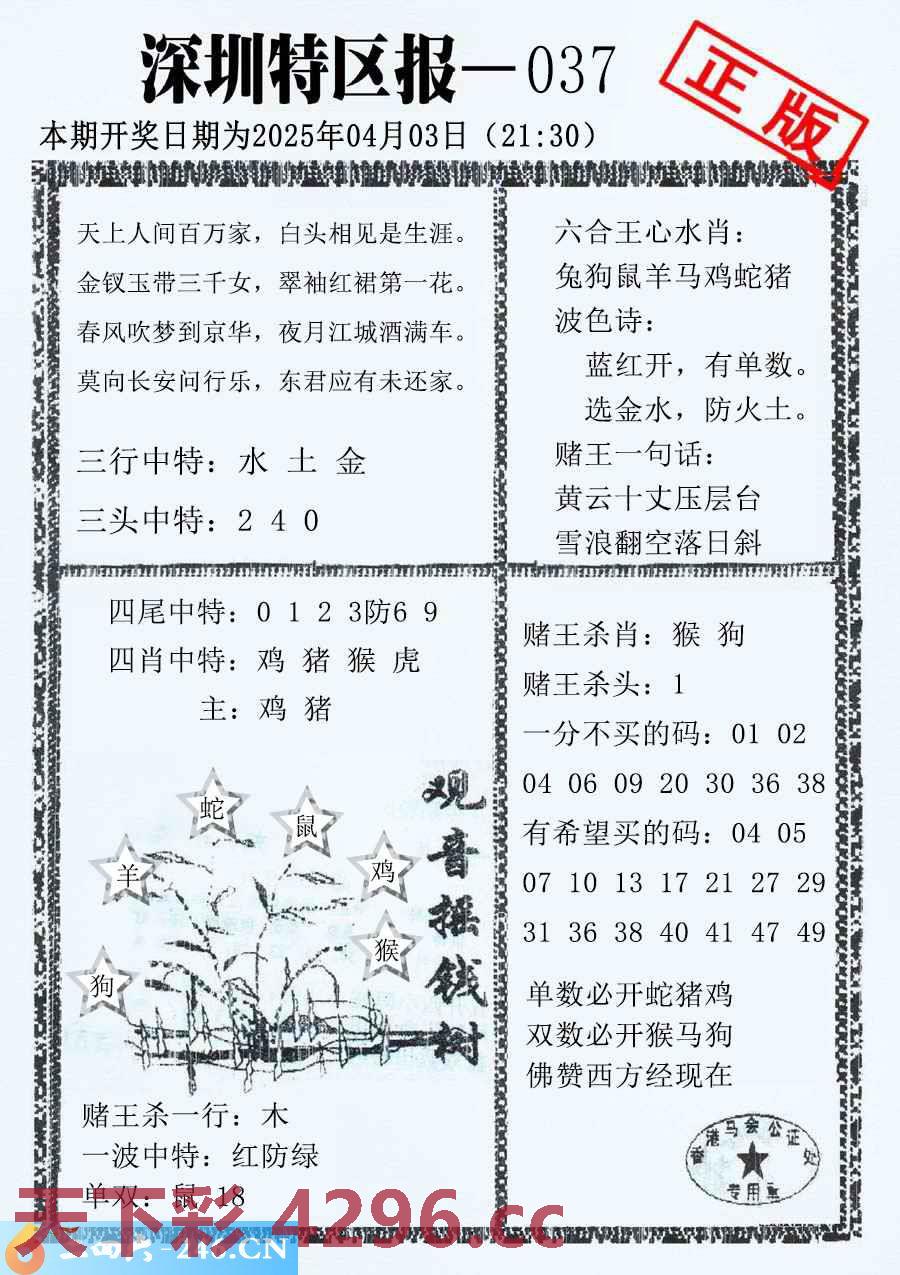 深圳特区报—037
正版
本期开奖日期为2025年04月03日（21:30）
天上人间百万家，白头相见是生涯。
金钗玉带三千女，翠袖红裙第一花。
春风吹梦到京华，夜月江城酒满车。
莫向长安问行乐，东君应有未还家。
三行中特：水 土 金
三头中特：2 4 0
六合王心水肖：
兔狗鼠羊马鸡蛇猪
波色诗：
蓝红开，有单数。
选金水，防火土。
赌王一句话：
黄云十丈压层台
雪浪翻空落日斜
四尾中特：0 1 2 3防6 9
四肖中特：鸡 猪 猴 虎
主：鸡 猪
观音摇钱树
蛇
鼠
羊
鸡
猴
狗
赌王杀一行：木
一波中特：红防绿
单双：鼠 18
赌王杀肖：猴 狗
赌王杀头：1
一分不买的码：01 02
04 06 09 20 30 36 38
有希望买的码：04 05
07 10 13 17 21 27 29
31 36 38 40 41 47 49
单数必开蛇猪鸡
双数必开猴马狗
佛赞西方经现在
香港马会公证处
专用章
天下彩 4296.cc
-246.CN